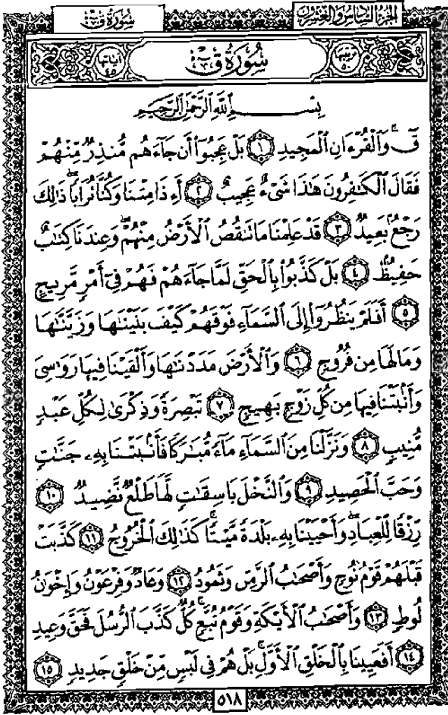 الجزء السادس والعشرون سُورَةُ قٓ
ترتيبها ٥٠ سُورَةُ قٓ آياتها ٤٥
بِسْمِ ٱللَّهِ ٱلرَّحْمَٰنِ ٱلرَّحِيمِ
قٓۚ وَٱلْقُرْءَانِ ٱلْمَجِيدِ ١ بَلْ عَجِبُوٓا۟ أَن جَآءَهُم مُّنذِرٌ مِّنْهُمْ
فَقَالَ ٱلْكَٰفِرُونَ هَٰذَا شَىْءٌ عَجِيبٌ ٢ أَءِذَا مِتْنَا وَكُنَّا تُرَابًا ۖ ذَٰلِكَ
رَجْعٌۢ بَعِيدٌ ٣ قَدْ عَلِمْنَا مَا تَنقُصُ ٱلْأَرْضُ مِنْهُمْ ۖ وَعِندَنَا كِتَٰبٌ
حَفِيظٌۢ ٤ بَلْ كَذَّبُوا۟ بِٱلْحَقِّ لَمَّا جَآءَهُمْ فَهُمْ فِىٓ أَمْرٍ مَّرِيجٍ
٥ أَفَلَمْ يَنظُرُوٓا۟ إِلَى ٱلسَّمَآءِ فَوْقَهُمْ كَيْفَ بَنَيْنَٰهَا وَزَيَّنَّٰهَا
وَمَا لَهَا مِن فُرُوجٍ ٦ وَٱلْأَرْضَ مَدَدْنَٰهَا وَأَلْقَيْنَا فِيهَا رَوَٰسِىَ
وَأَنۢبَتْنَا فِيهَا مِن كُلِّ زَوْجٍۭ بَهِيجٍ ٧ تَبْصِرَةً وَذِكْرَىٰ لِكُلِّ عَبْدٍ
مُّنِيبٍ ٨ وَنَزَّلْنَا مِنَ ٱلسَّمَآءِ مَآءً مُّبَٰرَكًا فَأَنۢبَتْنَا بِهِۦ جَنَّٰتٍ
وَحَبَّ ٱلْحَصِيدِ ٩ وَٱلنَّخْلَ بَاسِقَٰتٍ لَّهَا طَلْعٌ نَّضِيدٌ ١٠
رِّزْقًا لِّلْعِبَادِ ۖ وَأَحْيَيْنَا بِهِۦ بَلْدَةً مَّيْتًا ۚ كَذَٰلِكَ ٱلْخُرُوجُ ١١ كَذَّبَتْ
قَبْلَهُمْ قَوْمُ نُوحٍ وَأَصْحَٰبُ ٱلرَّسِّ وَثَمُودُ ١٢ وَعَادٌ وَفِرْعَوْنُ وَإِخْوَٰنُ
لُوطٍ ١٣ وَأَصْحَٰبُ ٱلْأَيْكَةِ وَقَوْمُ تُبَّعٍ ۚ كُلٌّ كَذَّبَ ٱلرُّسُلَ فَحَقَّ وَعِيدِ
١٤ أَفَعَيِينَا بِٱلْخَلْقِ ٱلْأَوَّلِ ۚ بَلْ هُمْ فِى لَبْسٍ مِّنْ خَلْقٍ جَدِيدٍ ١٥
٥١٨